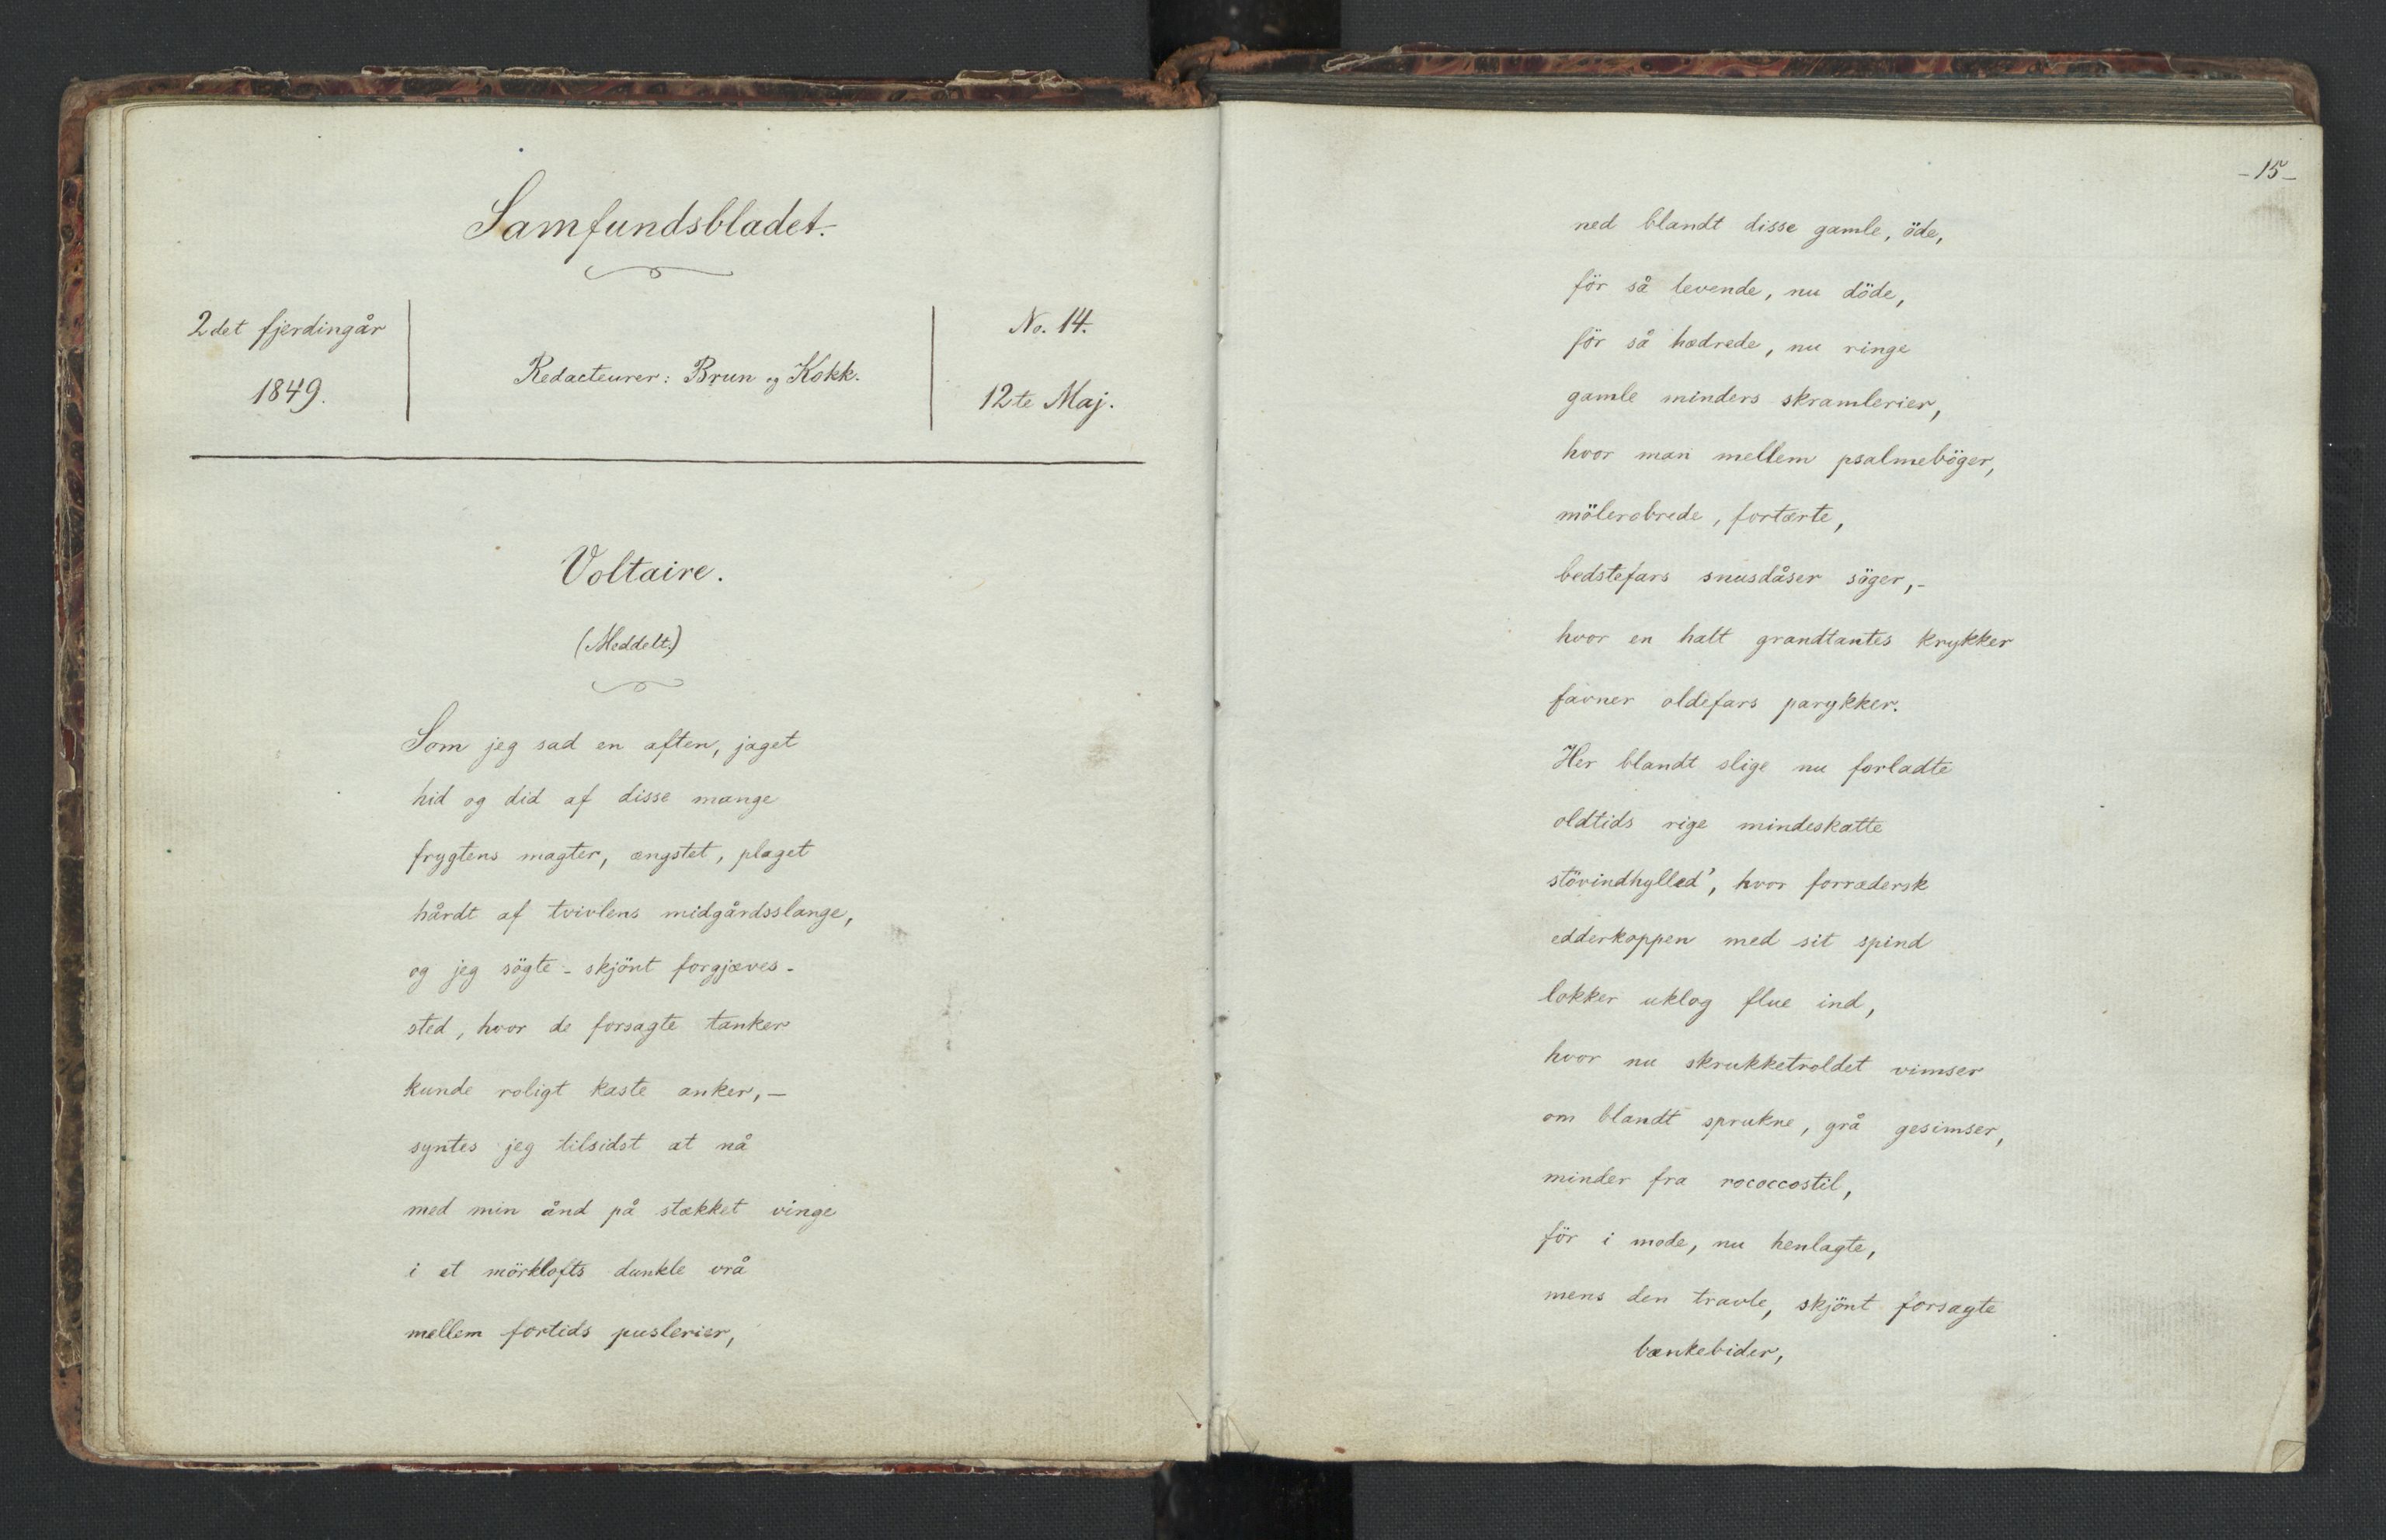 Samfundsbladet.
2det fjerdingår
1849.
Redacteurer: Brun og Kokk.
No. 14.
12te Maj.
Voltaire.
(Meddelt.)
Som jeg sad en aften, jaget
hid og did af disse mange
frygtens magter, ængstet, plaget
hårdt af tvivlens midgårdsslange,
og jeg sögte - skjönt forgjæves -
sted, hvor de forsagte tanker
kunde roligt kaste anker, -
syntes jeg tilsidst at nå
med min ånd på stækket vinge
i et mörklofts dunkle vrå
mellem fortids puslerier,
- 15 -
ned blandt disse gamle, öde,
för så levende, nu döde,
för så hædrede, nu ringe
gamle minders skramlerier,
hvor man mellem psalmeböger,
mölerobrede, fortærte,
bedstefars snusdåser söger, -
hvor en halt grandtantes krykker
favner oldefars parykker.
Her blandt slige nu forladte
oldtids rige mindeskatte
stövindhylled', hvor forrædersk
edderkoppen med sit spind
lokker uklog flue ind,
hvor nu skrukketroldet vimser
om blandt sprukne, grå gesimser,
minder fra rococcostil,
för i mode, nu henlagte,
mens den travle, skjönt forsagte
bænkebider,